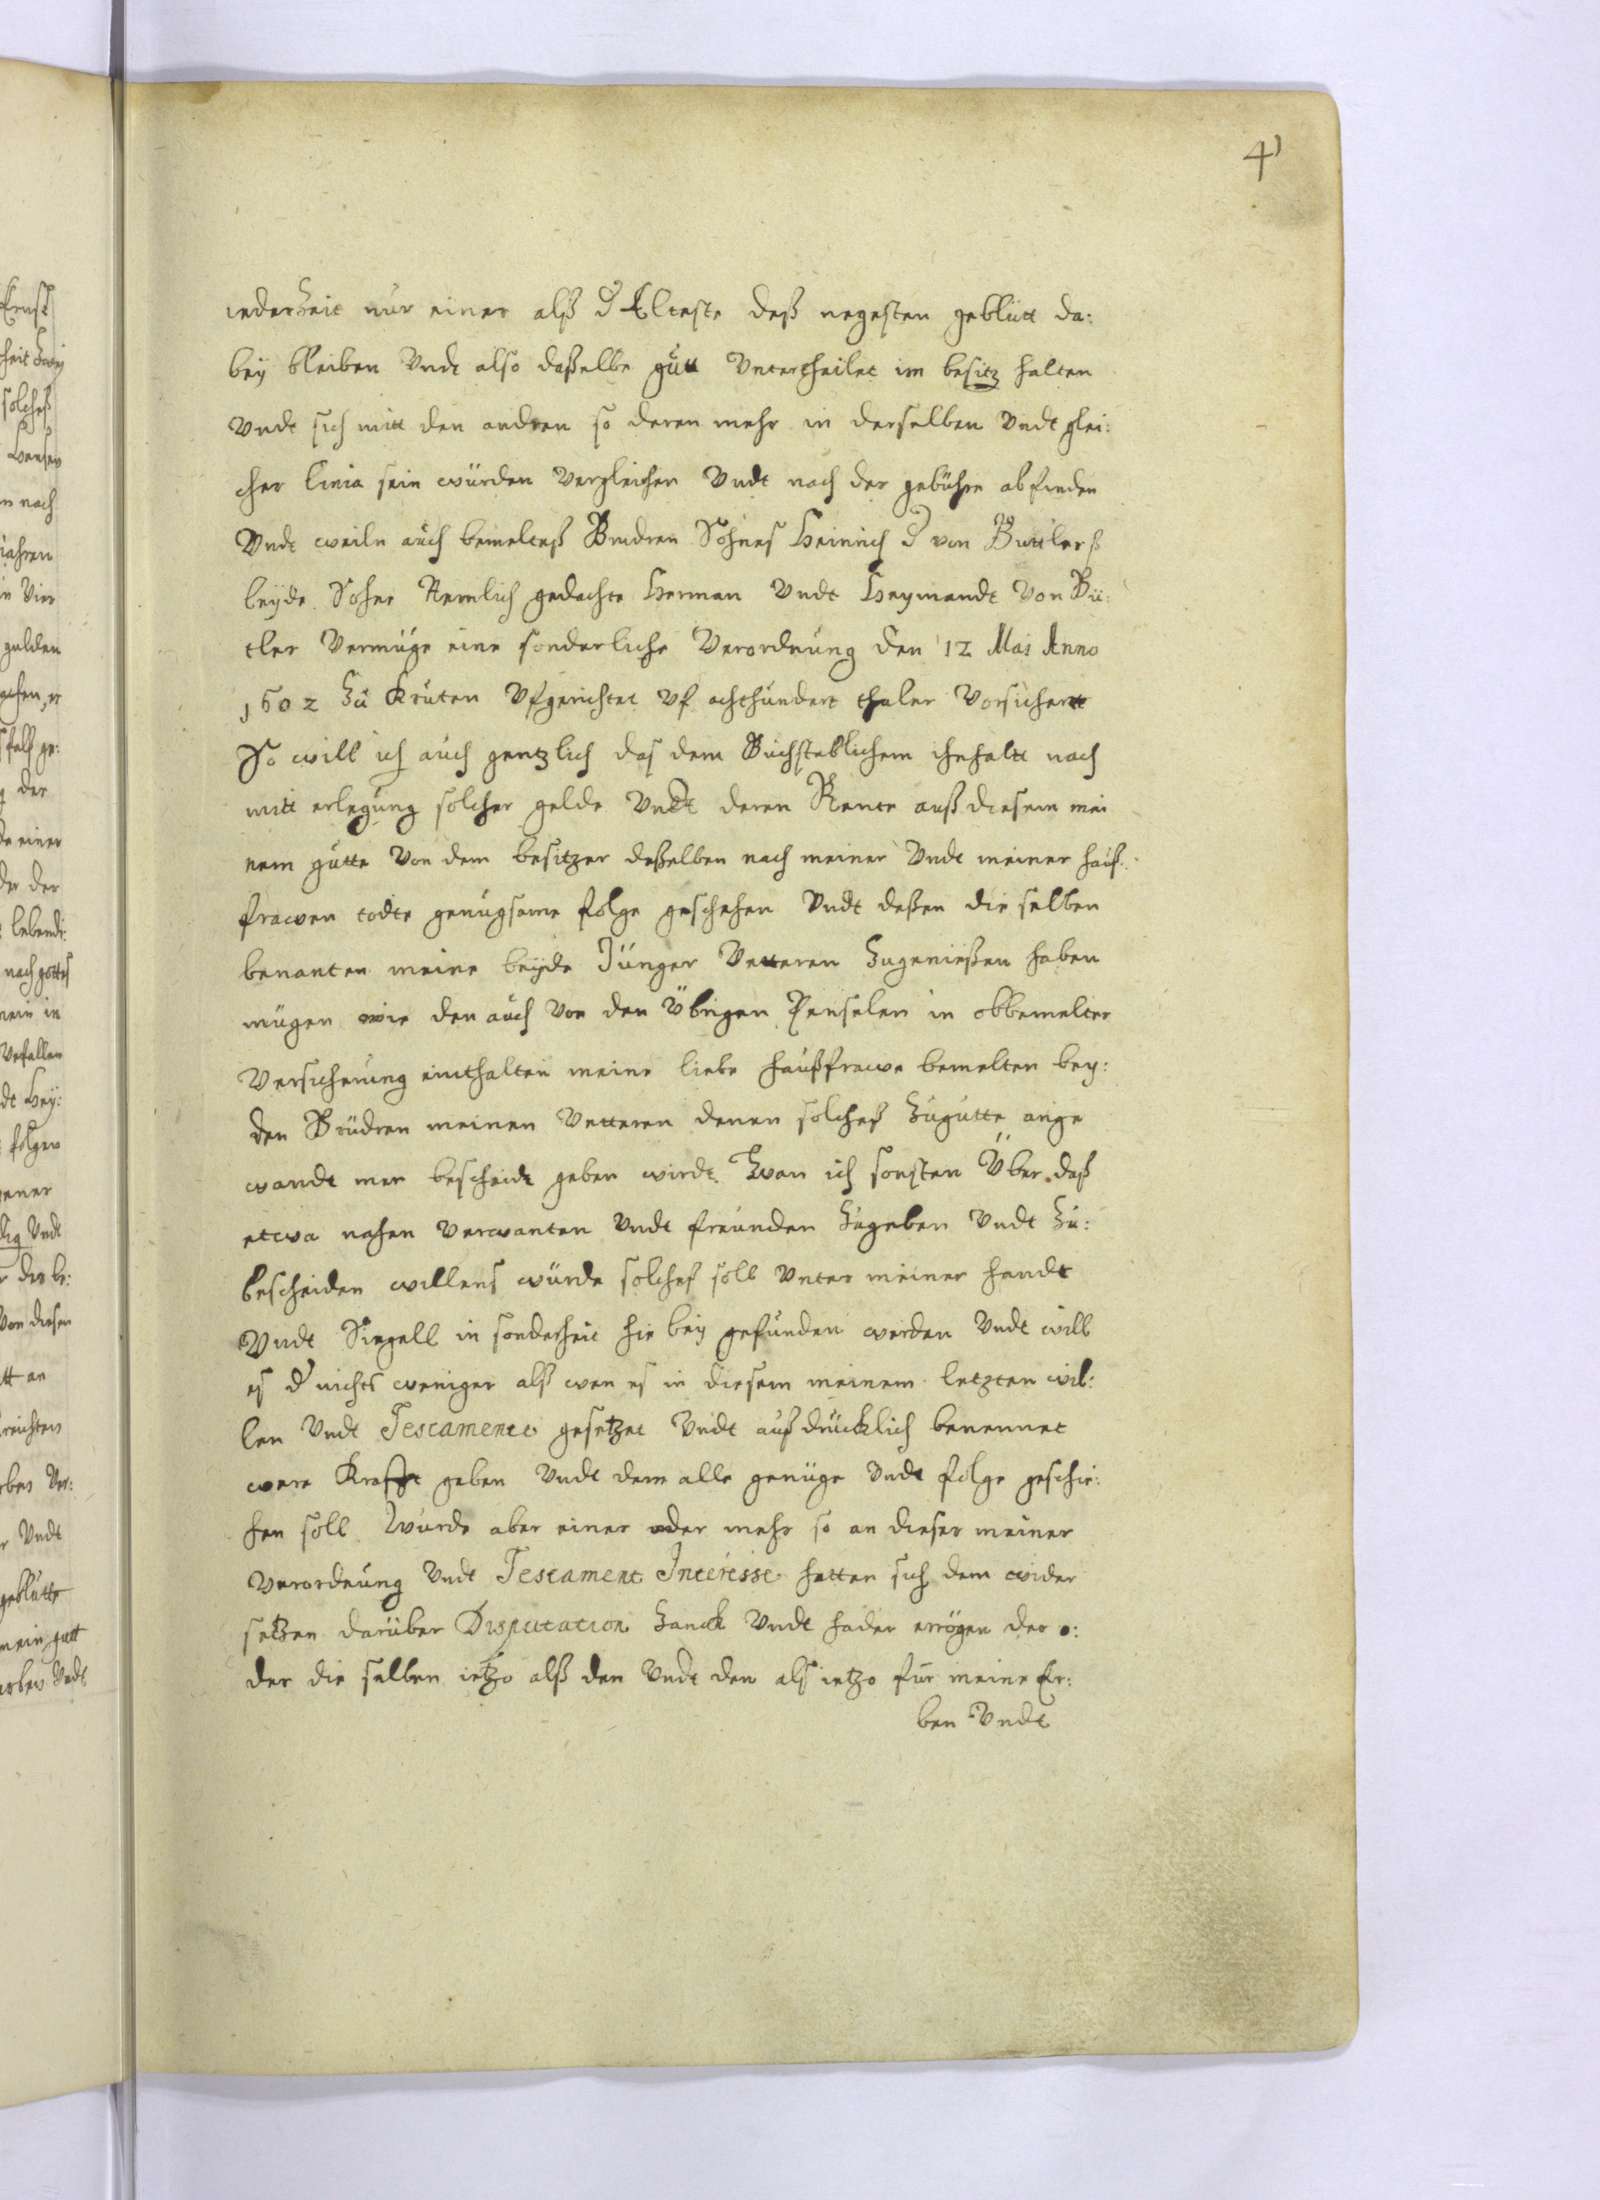 4)
iederZeit nur einer alß d Elteste deß negesten geblütt da:
bey bleiben Vndt also daßelbe gutt Vntertheilet im besitz halten
Vndt sich mitt den andren so deren mehr in derselben Vndt glei:
cher linia sein würden Vergleichen Vndt nach der gebühre abfinden
Vndt weiln auch bemeltes Brudren Sohnes Heinrich d von Buttlerß
beyde Sohne Nemlich gedachte Herman Vndt Heymandt Von Bu:
tler Vermüge eine sonderliche Verordnung den 12 Mai Anno
1602 Zu Kruten Vfgerichtet Vf achthundert thaler Vorsichertt
So will ich auch gentzlich das dem Buchstablichem ihnhaltt nach
mitt erlegung solcher gelde Vndt deren Rente auß diesem mei
nem gutte Von dem besitzer deßelben nach meiner Vndt meiner hauß:
frawen todte genugsame folge geschehen Vndt deßen die selben
benanten meine beyde Jünger Vetteren Zugenießen haben
mügen wie den auch Von den Übrigen in obbemelter
Versicherung einthalten meine liebe haußfrawe bemelten bey:
den Brüdren meinen Vetteren denen solches Zugutte ange
wandt mer bescheidt geben wirdt. Wan ich sonsten Über daß
etwa nahen Verwanten Vndt freunden Zugeben Vndt Zu:
bescheiden willens würde solches soll Vnter meiner handt
Vndt Siegell in sonderheit hie bey gefunden werden Vndt will
es d nichts weniger alß wen es in diesem meinem letzten wil:
len Vndt Testamente gesetzet Vndt außdrücklich benennet
were Krafft geben Vndt dem alle genüge Vndt folge geschie:
hen soll Wurde aber einer oder mehr so an dieser meiner
Verordnung Vndt Testament Interesse hetten sich dem wider
setzen darüber Disputation Zanck Vndt hader erregen der o:
der die selben ietzo alß den Vndt den alß ietzo für meine Er:
ben Vndt